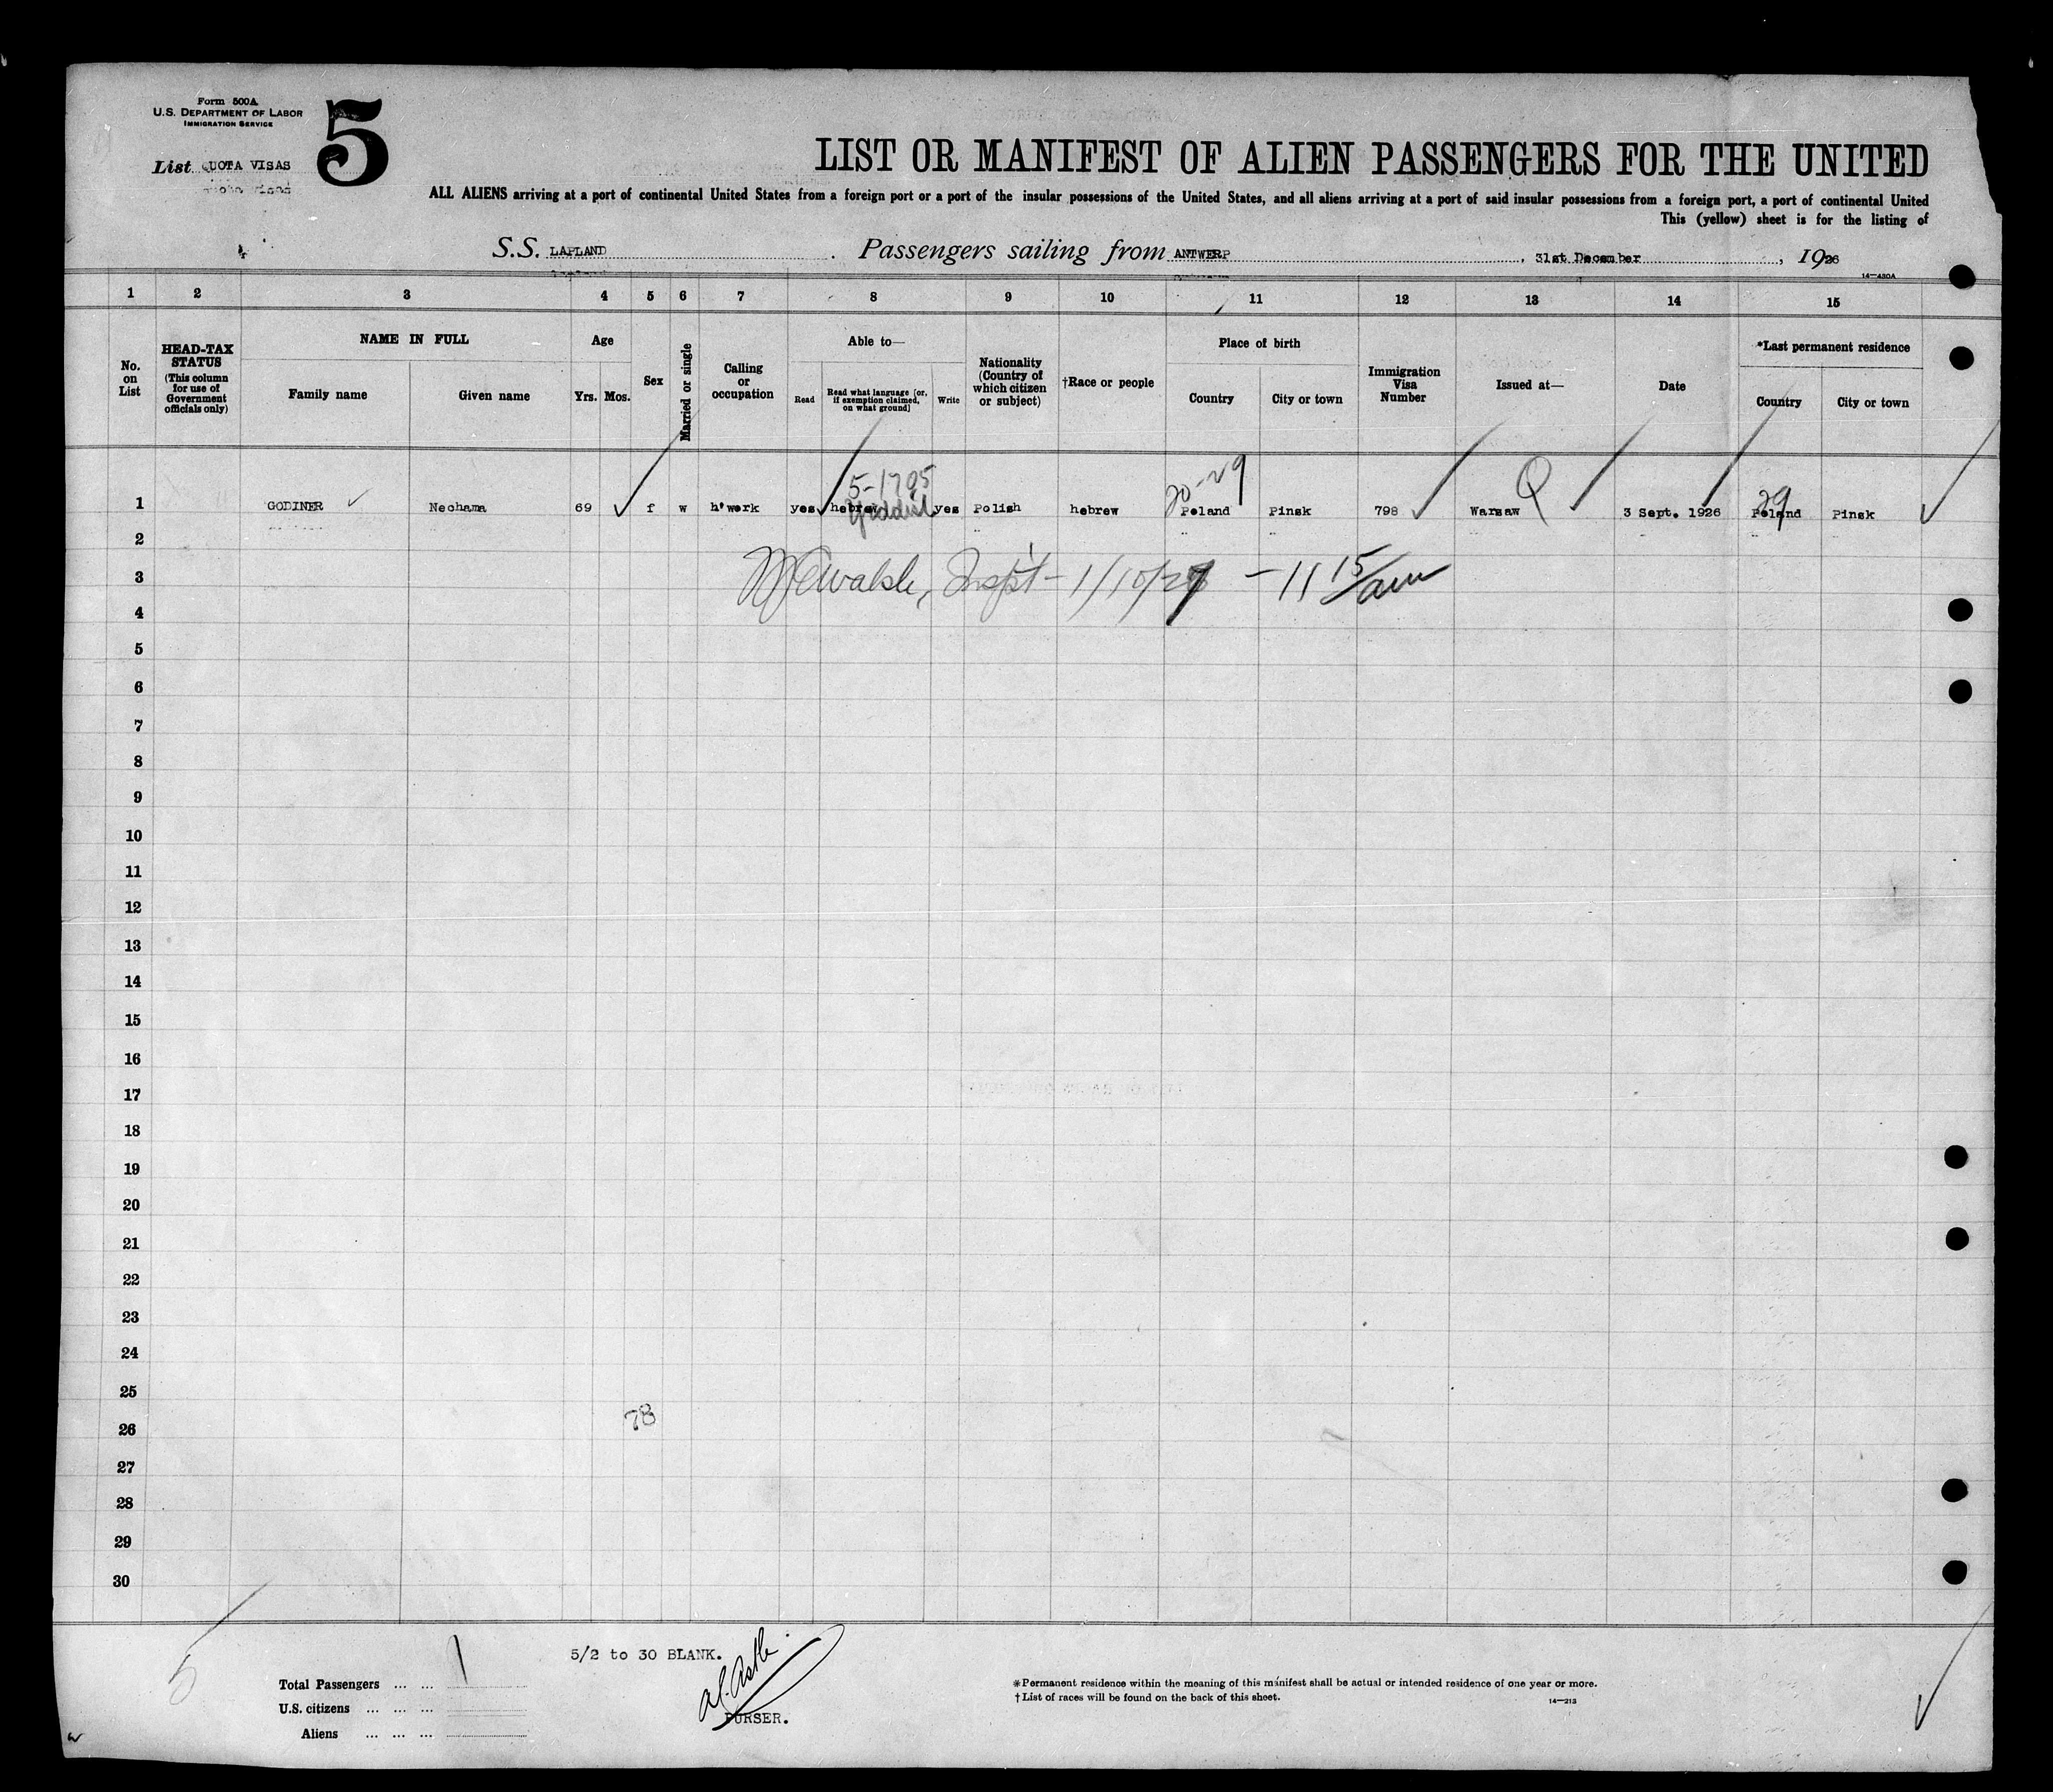 Form 500A
U.S. DEPARTMENT OF LABOR
IMMIGRATION SERVICE
5
List QUOTA VISAS
LIST OR MANIFEST OF ALIEN PASSENGERS FOR THE UNITED
ALL ALIENS arriving at a port of continental United States from a foreign port or a port of the insular possessions of the United States, and all aliens arriving at a port of said insular possessions from a foreign port, a port of continental United
This (yellow) sheet is for the listing of
S.S. LAPLAND. Passengers sailing from ANTWERP, 31st December, 1926
14—430A
1 2 3 4 5 6 7 8 9 10 11 12 13 14 15
No. on List
HEAD-TAX STATUS
(This column for use of Government officials only)
NAME IN FULL
Family name Given name
Age
Yrs. Mos.
Sex
Married or single
Calling or occupation
Able to—
Read Read what language (or, if exemption claimed, on what ground) Write
Nationality (Country of which citizen or subject)
†Race or people
Place of birth
Country City or town
Immigration Visa Number
Issued at—
Date
*Last permanent residence
Country City or town
5-1705
20-29
Q
29
1 GODINER Nechama 69 f w h'work yes hebrew Yiddish yes Polish hebrew Poland Pinsk 798 Warsaw 3 Sept. 1926 Poland Pinsk
2
Walsh, Inspt - 1/10/27 - 11 15/am
3
4
5
6
7
8
9
10
11
12
13
14
15
16
17
18
19
20
21
22
23
24
25
78
26
27
28
29
30
5
5/2 to 30 BLANK.
Total Passengers ... ... 1
U.S. citizens ... ... ...
Aliens ... ... ...
PURSER.
*Permanent residence within the meaning of this manifest shall be actual or intended residence of one year or more.
†List of races will be found on the back of this sheet.
14—213